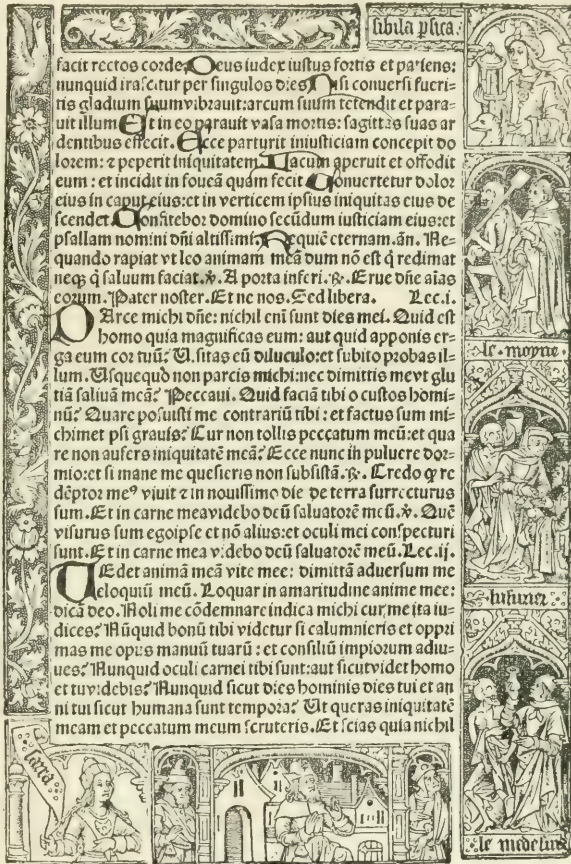 sibila psica.
facit rectos corde Deus iudex iustus fortis et patiens:
nunquid irascitur per singulos dies Nisi conuersi fueri-
tis gladium suum vibrauit: arcum suum tetendit et para-
uit illum Et in eo parauit vasa mortis: sagittas suas ar
dentibus effecit. Ecce parturit iniusticiam concepit do
lorem: ⁊ peperit iniquitatem Lacum aperuit et offodit
eum: et incidit in foueā quam fecit Conuertetur dolor
eius in caput eius: et in verticem ipsius iniquitas eius de
scendet Confitebor domino secūdum iusticiam eius: et
psallam nomini dn̄i altissimi Requiē eternam. an̄. Ne-
quando rapiat vt leo animam meā dum nō est q̄ redimat
neqȝ q̄ saluum faciat. ℣. A porta inferi. ℟. Erue dn̄e aīas
eorum. Pater noster. Et ne nos. Sed libera. Lec. i.
PArce michi dn̄e: nichil enī sunt dies mei. Quid est
homo quia magnificas eum: aut quid apponis er-
ga eum cor tuū? Visitas eū diluculo: et subito probas il-
lum. Usquequo non parcis michi: nec dimittis me vt glu
tiā saliuā meā? Peccaui. Quid faciā tibi o custos homi-
nū? Quare posuisti me contrariū tibi: et factus sum mi-
chimet psi grauis? Cur non tollis peccatum meū: et qua
re non aufers iniquitatē meā? Ecce nunc in puluere dor-
mio: et si mane me quesieris non subsistā. ℟. Credo qꝫ re
dēptor meꝰ viuit ⁊ in nouissimo die de terra surrecturus
sum. Et in carne mea videbo deū saluatorē meū. ℣. Quē
visurus sum ego ipse et nō alius: et oculi mei conspecturi
sunt. Et in carne mea videbo deū saluatorē meū. Lec. ij.
TEdet animā meā vite mee: dimittā aduersum me
eloquiū meū. Loquar in amaritudine anime mee:
dicā deo. Noli me cōdemnare indica michi cur me ita iu-
dices? Nūquid bonū tibi videtur si calumnieris et oppri
mas me opus manuū tuarū: et consiliū impiorum adiu-
ues? Nunquid oculi carnei tibi sunt: aut sicut videt homo
et tu videbis? Nunquid sicut dies hominis dies tui et an
ni tui sicut humana sunt tempora? Ut queras iniquitatē
meam et peccatum meum scruteris. Et scias quia nichil
le moyne
lusurier
le medeĩn